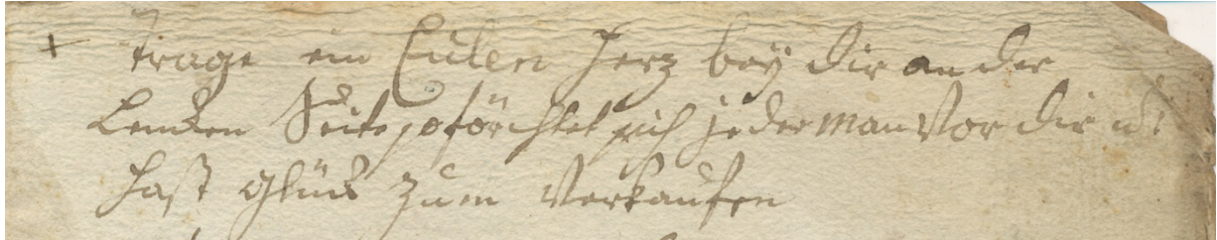 + trage ein Eulen Herz beÿ dir an der
Lencken Seite, so förchtet sich jederman Vor dir u:
hast glück zum Verkaufen